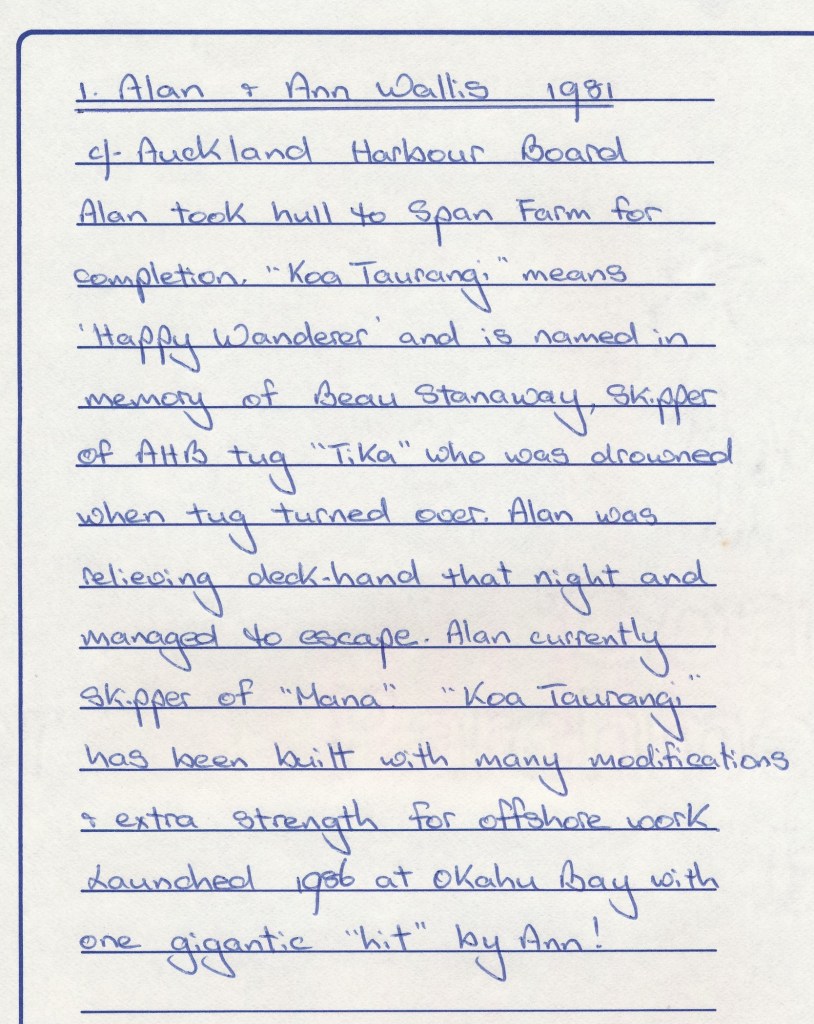 1. Alan & Ann Wallis 1981
c/- Auckland Harbour Board
Alan took hull to Span Farm for
completion. "Koa Taurangi" means
'Happy Wanderer' and is named in
memory of Beau Stanaway, skipper
of AHB tug "Tika" who was drowned
when tug turned over. Alan was
relieving deck-hand that night and
managed to escape. Alan currently
skipper of "Mana" "Koa Taurangi"
has been built with many modifications
& extra strength for offshore work
Launched 1986 at Okahu Bay with
one gigantic "hit" by Ann!